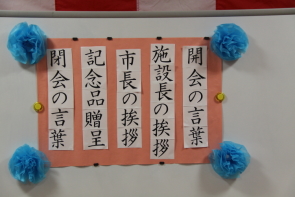 開会の言葉
施設長の挨拶
市長の挨拶
記念品贈呈
閉会の言葉